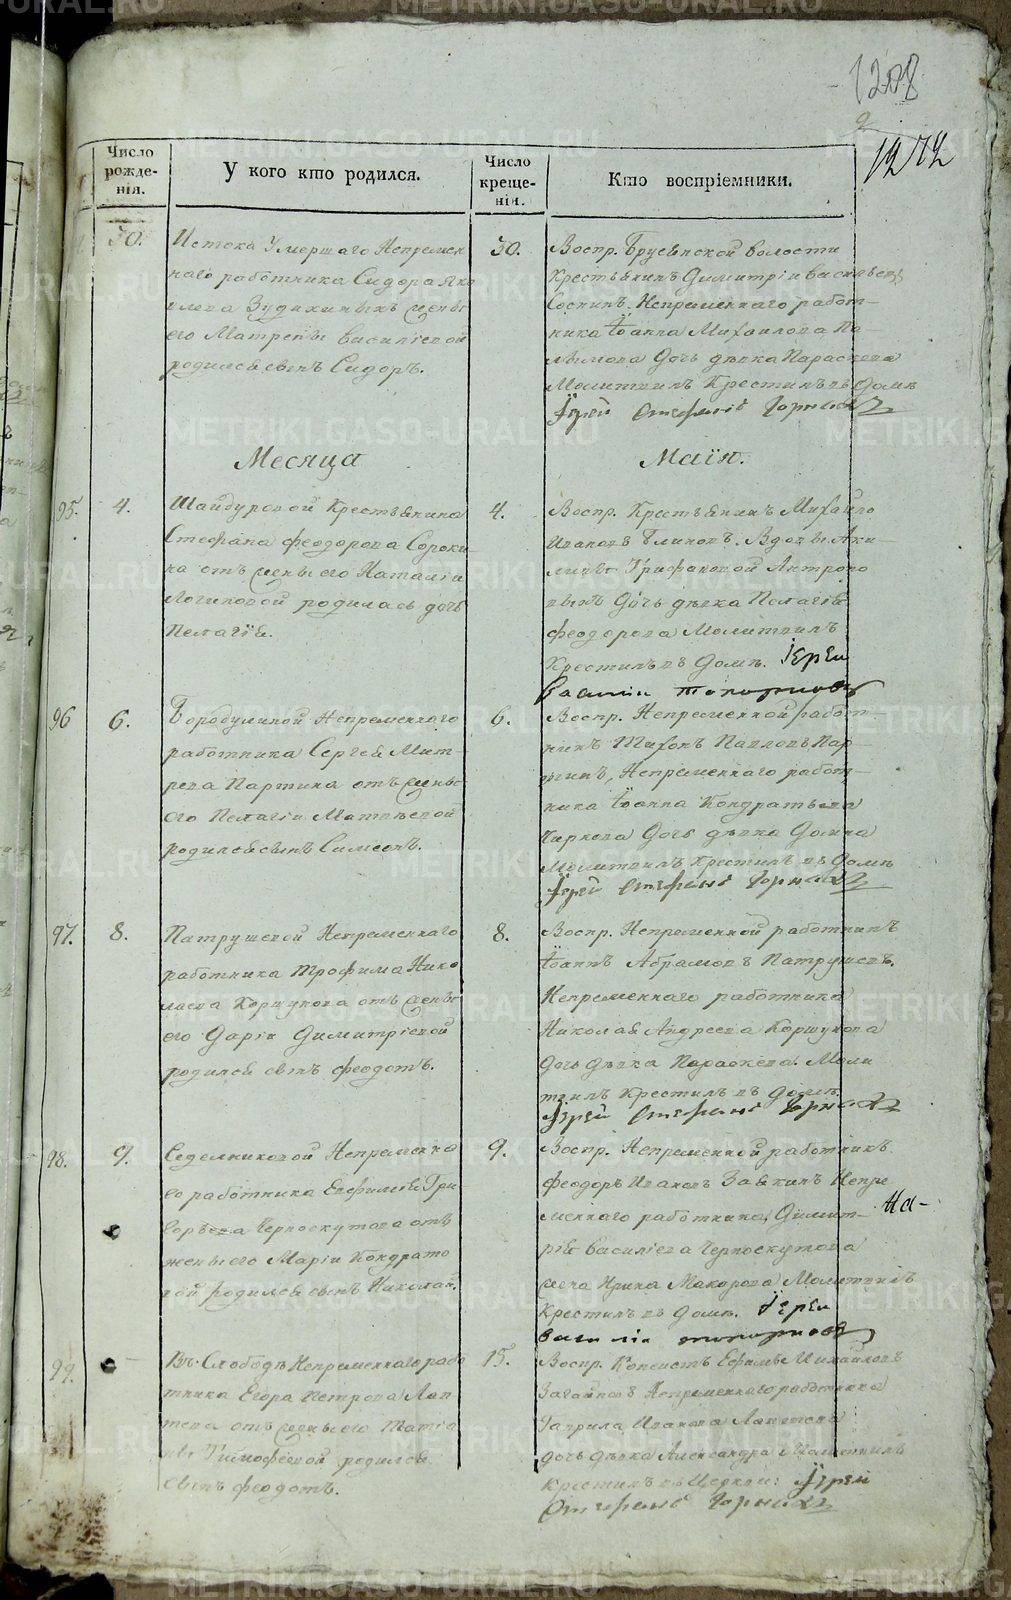 1208
1272
Число рожде-нія.
У кого кто родился.
Число креще-ніи.
Кто воспріемники.
30.
Истока Умершаго Непремен
наго работника Сидора Яко
влева Зудихиныхъ жены
его Матрены Василіевой
родился сынъ Сидоръ.
30.
Воспр. Брусянской волости
Крестьянинъ Димитріи Васильевъ
Соснинъ. Непременнаго работ-
ника Іоанна Михаилова По-
лымова дочь дѣвка Параскева
Молитвилъ Крестилъ въ домѣ
Іерей Стефанъ Горныхъ
Месяца
Маія.
95.
4.
Шайдуровой Крестьянина
Стефана Феодорова Сороки-
на отъ жены его Наталіи
Логиновой родилась дочь
Пелагія.
4.
Воспр. Крестьянинъ Михайло
Ивановъ Блиновъ. Вдовы Аки-
лины Трифановой
дочь дѣвка Пелагія
Феодорова Молитвилъ
Крестилъ въ домѣ. Іереи
Василіи Топорковъ
96
6.
Бородулиной Непременнаго
работника Сергея Мит-
рева Партина отъ жены
его Пелагіи Матвѣевой
родился сынъ Симеонъ.
6.
Воспр. Непременной работ-
никъ Тихонъ Павловъ Пар-
тинъ, Непременнаго работ-
ника Іоанна Кондратьева
Киркова дочь дѣвка Домна
Молитвилъ Крестилъ въ домѣ
Іерей Стефанъ Горныхъ
97.
8.
Патрушевой Непременнаго
работника Трофима Нико
лаева Коршунова отъ жены
его Даріи Димитріевой
родился сынъ Феодотъ.
8.
Воспр. Непременной работникъ
Іоаннъ Абрамовъ Патрушевъ.
Непременнаго работника
Николая Андреева Коршунова
дочь дѣвка Параскева. Моли
твилъ Крестилъ въ домѣ.
Іерей Стефанъ Горныхъ
98.
9.
Седелниковой Непременна
го работника Евфимія Гри
горьева Черноскутова отъ
жены его Маріи Кондрато
вой родился сынъ Николай.
9.
Воспр. Непременной работникъ
Феодоръ Ивановъ Заякинъ Непре
меннаго работника Димит-
рія Василіева Черноскутова
жена Ирина Макарова Молитвилъ
Крестилъ въ домѣ. Іереи
Василіи Топорковъ
На-
99.
Въ Слободѣ Непременнаго рабо
тника Егора Петрова Лап
тева отъ жены его Татіа
ны Тимофеевой родился
сынъ Феодотъ.
15.
Воспр. Копеистъ Ефимъ Михайловъ
Загайновъ Непременнаго работника
Гаврила Иванова Лаптева
дочь дѣвка Александра Молитвилъ
Крестилъ въ Церкви: Іерей
Стефанъ Горныхъ
METRIKI.GASO-URAL.RU